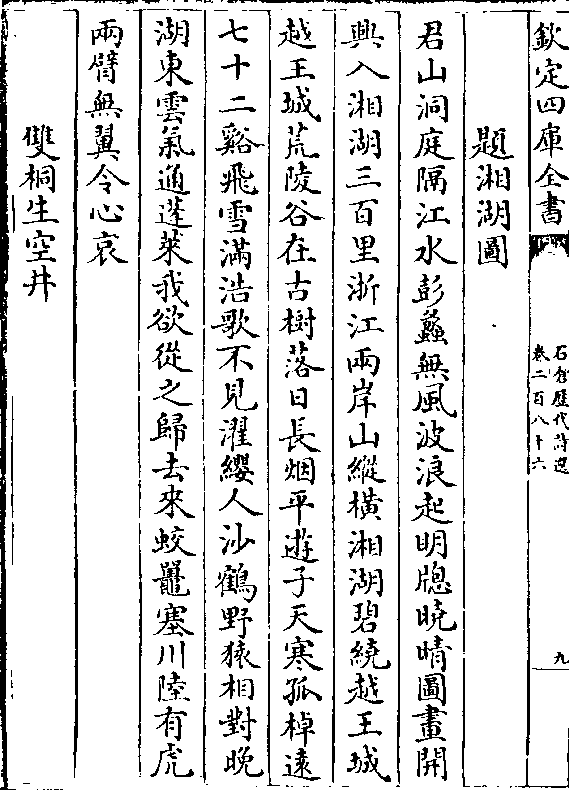 欽定四庫全書
石倉歷代詩選
卷二百八十六
九
題湘湖圖
君山洞庭隔江水彭蠡無風波浪起明牕曉晴圖畫開
興入湘湖三百里浙江兩岸山縱橫湘湖碧繞越王城
越王城荒陵谷在古樹落日長烟平遊子天寒孤棹遠
七十二谿飛雪滿浩歌不見濯纓人沙鶴野猿相對晚
湖東雲氣通蓬萊我欲從之歸去來蛟鼉塞川陸有虎
兩臂無翼令心哀
雙桐生空井